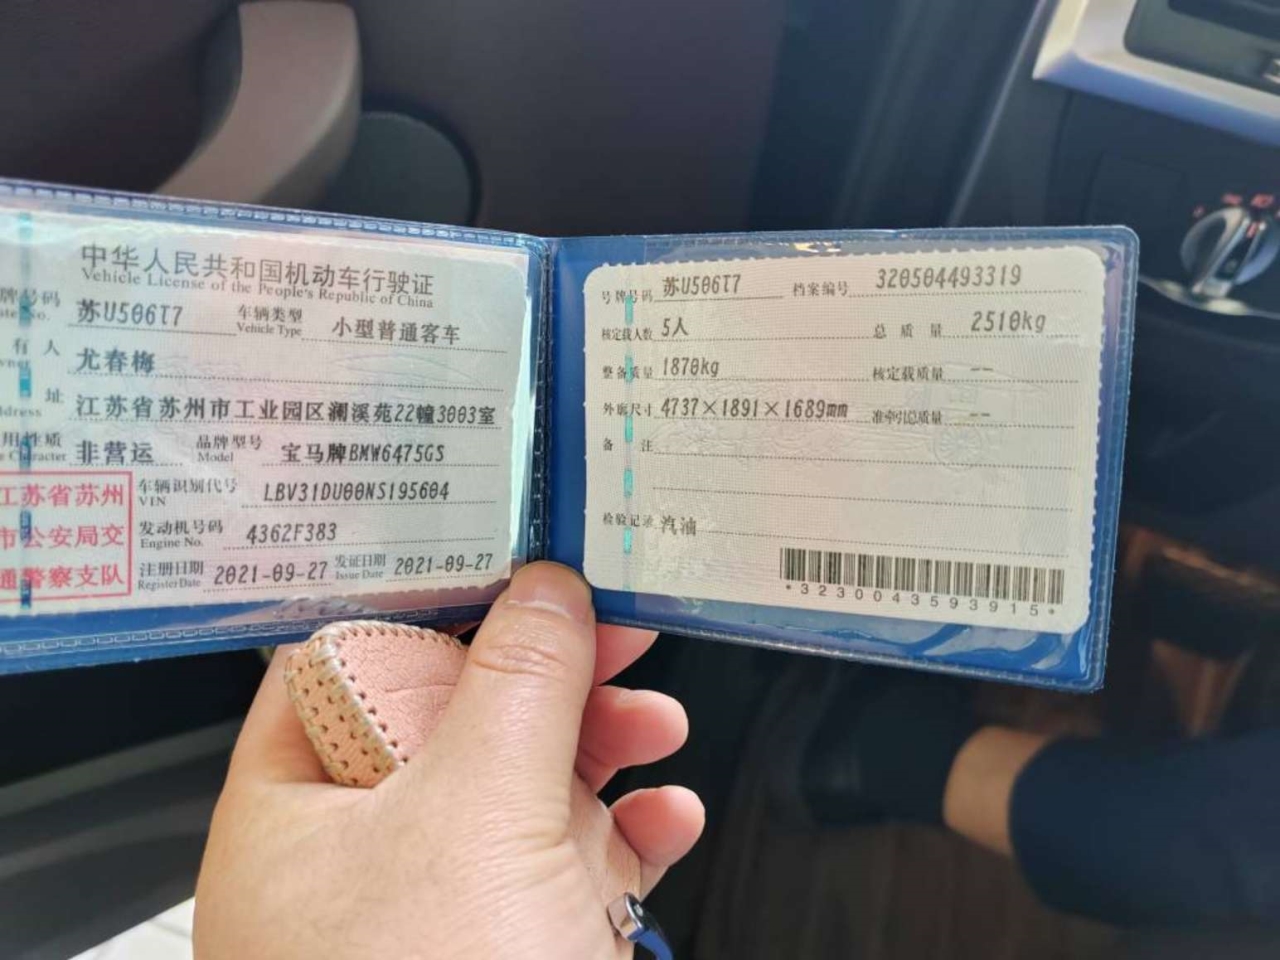 中华人民共和国机动车行驶证
Vehicle License of the People's Republic of China
牌号码 苏U506T7 车辆类型 小型普通客车
No. Vehicle Type
有人 尤春梅
址 江苏省苏州市工业园区澜溪苑22幢3003室
用性质 非营运 品牌型号 宝马牌BMW6475GS
Character Model
江苏省苏州
市公安局交
通警察支队
车辆识别代号 LBV31DU00NS195604
VIN
发动机号码 4362F383
Engine No.
注册日期 2021-09-27 发证日期 2021-09-27
Register Date Issue Date
号牌号码 苏U506T7 档案编号 320504493319
核定载人数 5人 总质量 2510kg
整备质量 1870kg 核定载质量 --
外廓尺寸 4737×1891×1689mm 准牵引总质量 --
备注
检验记录 汽油
*3230043593915*